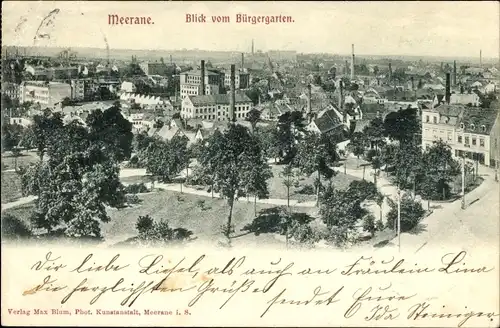 Meerane. Blick vom Bürgergarten.
Dir liebe Liesel, als auch an Fräulein Lina
die herzlichsten Grüße sendet Eure Ida Steiniger
Verlag Max Blum, Phot. Kunstanstalt, Meerane i. S.